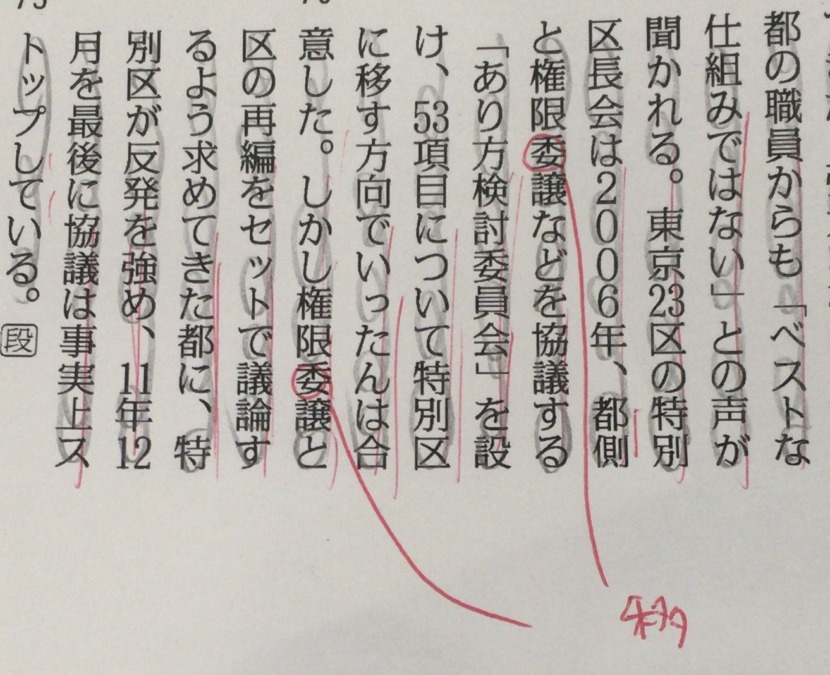 都の職員からも「ベストな
仕組みではない」との声が
聞かれる。東京23区の特別
区長会は2006年、都側
と権限委譲などを協議する
「あり方検討委員会」を設
け、53項目について特別区
に移す方向でいったんは合
意した。しかし権限委譲と
区の再編をセットで議論す
るよう求めてきた都に、特
別区が反発を強め、11年12
月を最後に協議は事実上ス
トップしている。段
移